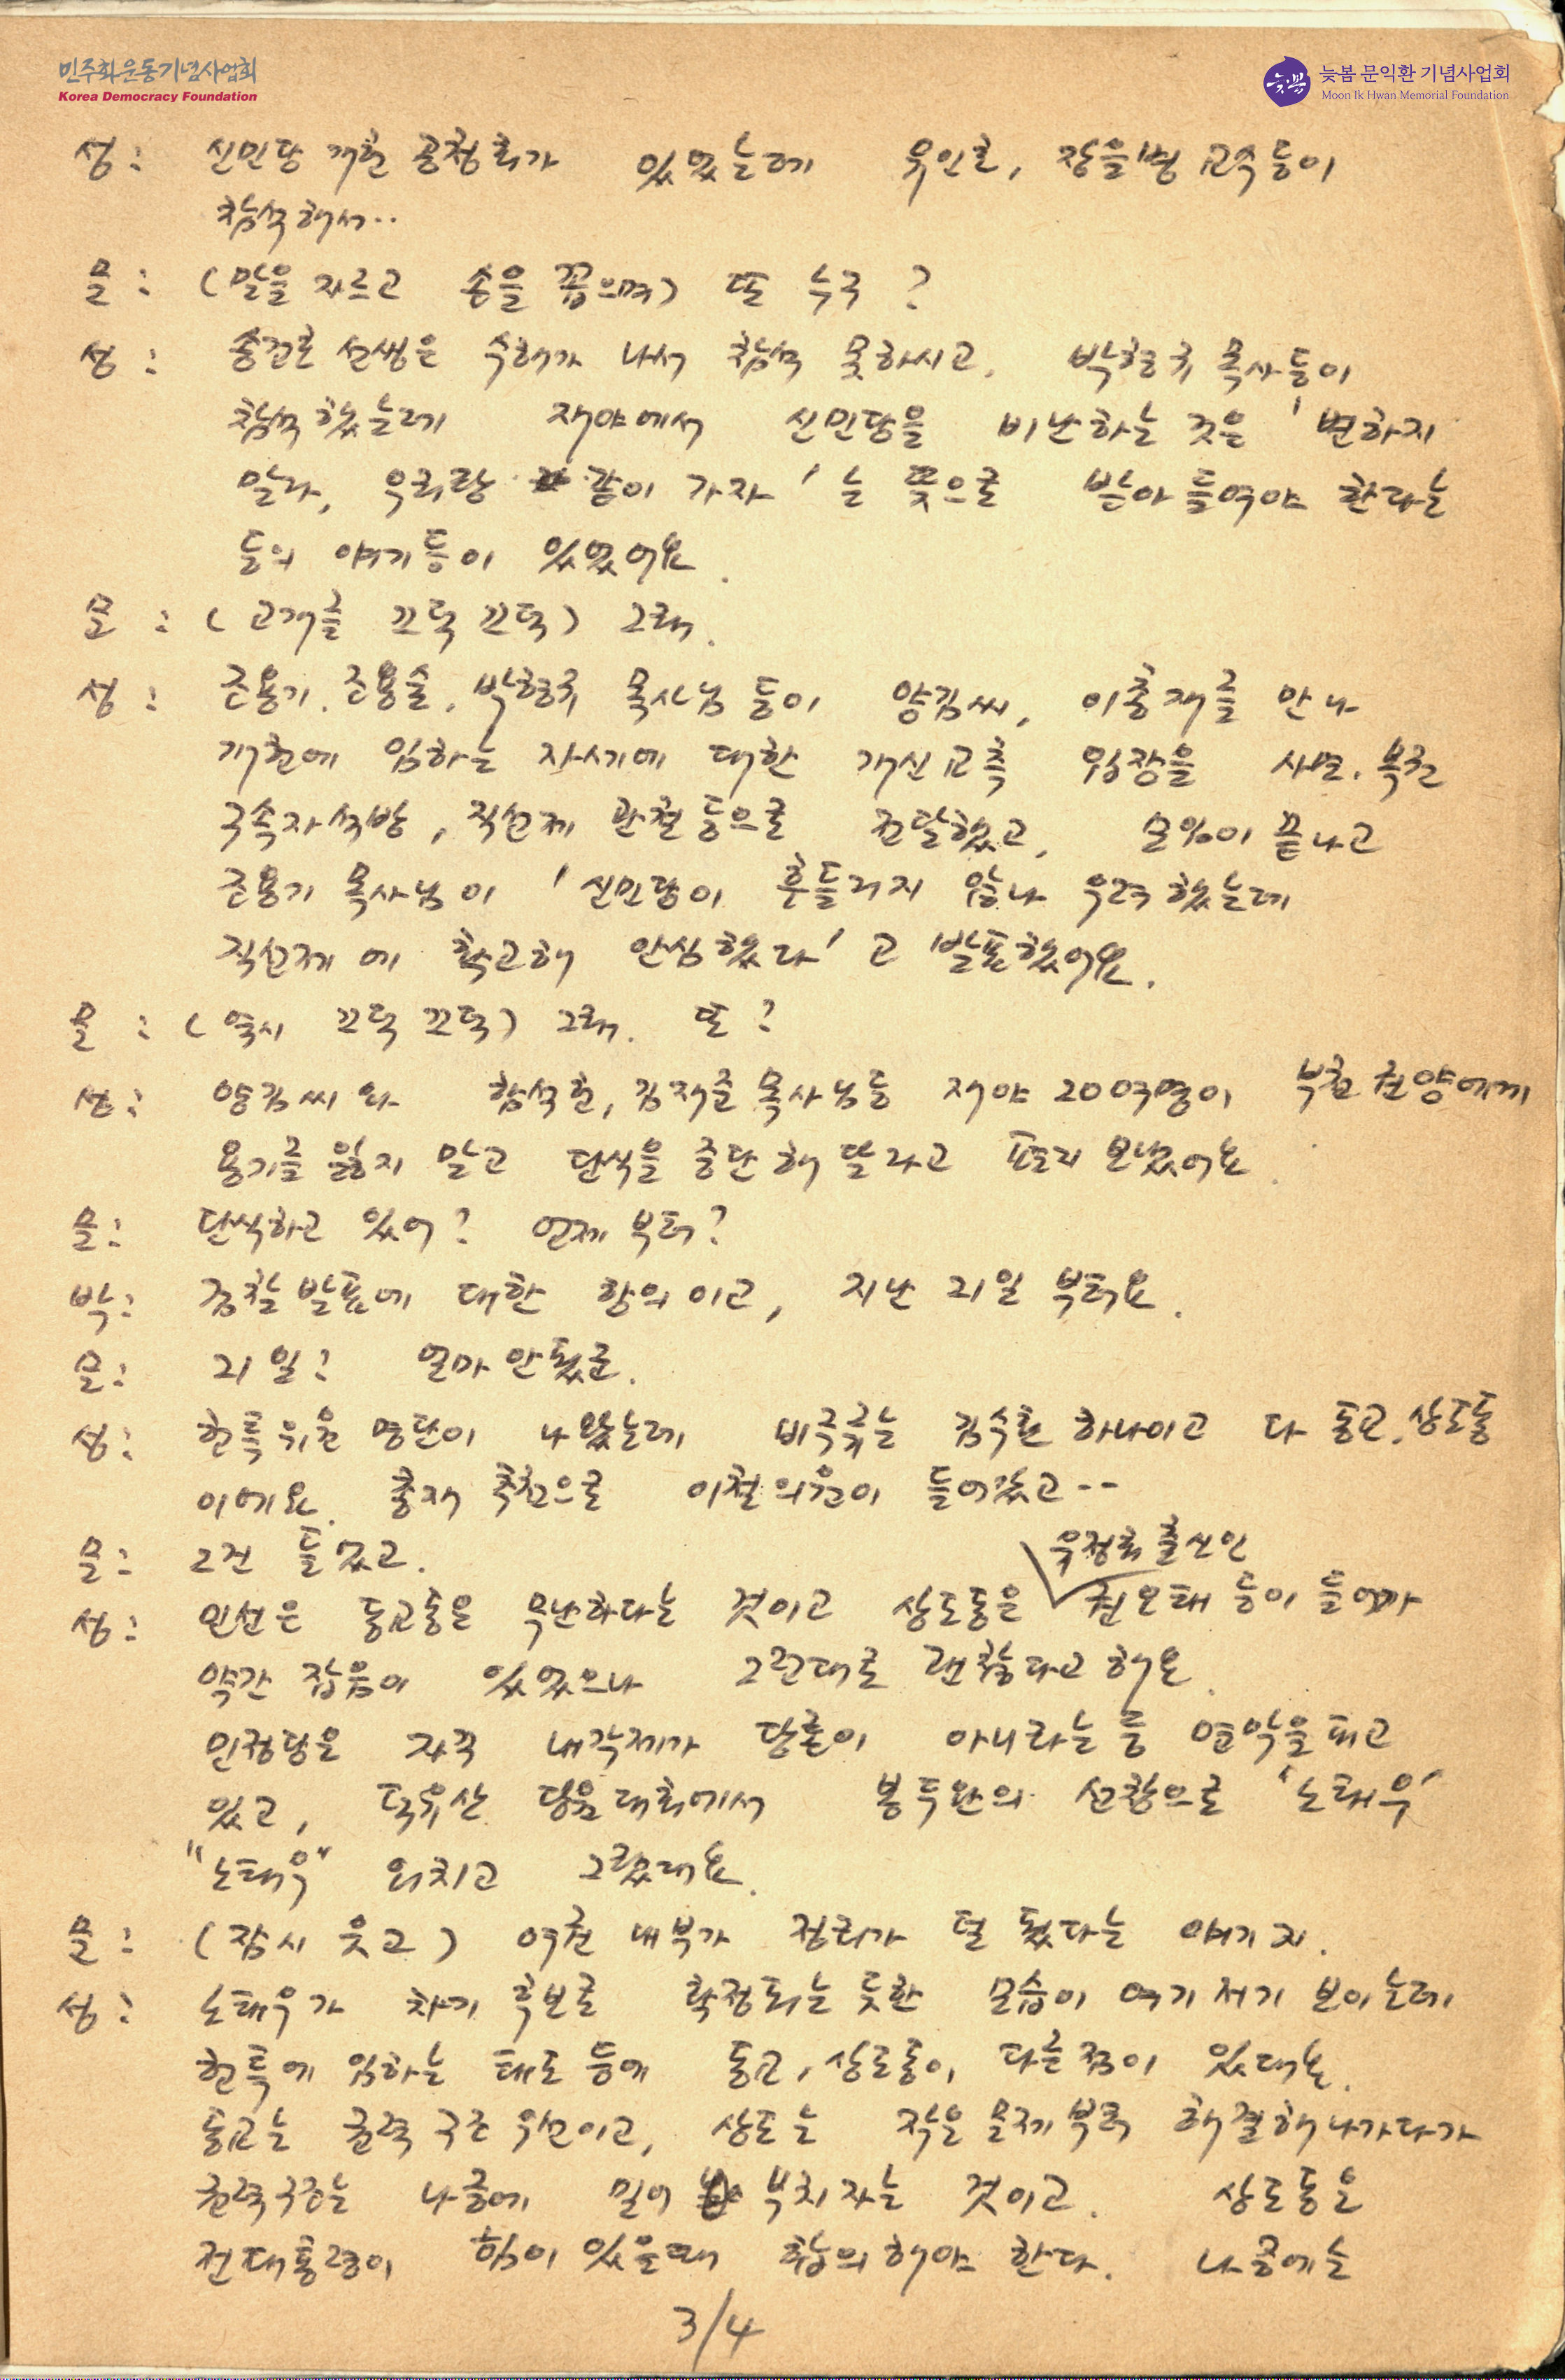 민주화운동기념사업회
Korea Democracy Foundation
늦봄
늦봄 문익환 기념사업회
Moon Ik Hwan Memorial Foundation
성: 신민당 개헌 공청회가 있었는데 유인호, 장을병 교수 등이
참석해서..
문: (말을 자르고 손을 꼽으며) 또 누구?
성: 송건호 선생은 수해가 나서 참석 못하시고, 박형규 목사 등이
참석했는데 재야에서 신민당을 비난하는 것을 '변하지
말라, 우리랑 같이 가자'는 뜻으로 받아들여야 한다는
등의 얘기들이 있었어요.
문: (고개를 끄덕끄덕) 그래.
성: 조용기, 조용술, 박형규 목사님 등이 양김씨, 이총재를 만나
개헌에 임하는 자세에 대한 개신교측 입장을 사면, 복권
구속자석방, 직선제 관철 등으로 전달했고, 모임이 끝나고
조용기 목사님이 '신민당이 흔들리지 않나 우려했는데
직선제에 확고해 안심했다'고 발표했어요.
문: (역시 끄덕끄덕) 그래. 또?
성: 양김씨와 함석헌, 김재준 목사님등 재야 200여명이 부천 권양에게
용기를 잃지 말고 단식을 중단해 달라고 편지 보냈어요.
문: 단식하고 있어? 언제부터?
박: 검찰 발표에 대한 항의이고, 지난 21일 부터요.
문: 21일? 얼마 안됐군.
성: 헌특위원 명단이 나왔는데 비주류는 김수한 하나이고 다 동교, 상도동
이에요. 총재 추천으로 이철의원이 들어갔고..
문: 그건 들었고.
유정회 출신인
성: 인선은 동교동은 무난하다는 것이고 상도동은 권오태 등이 들어가
약간 잡음이 있었으나 그런대로 괜찮다고 해요.
민정당은 자꾸 내각제가 당론이 아니라는 등 연막을 펴고
있고, 덕유산 단합대회에서 봉두완의 선창으로 "노태우"
"노태우" 외치고 그랬대요.
문: (잠시 웃고) 여권 내부가 정리가 덜 됐다는 얘기지.
성: 노태우가 차기 후보로 확정되는 듯한 모습이 여기저기 보이는데
헌특에 임하는 태도 등에 동교, 상도동이 다른 점이 있대요.
동교는 권력구조 우선이고, 상도는 작은 문제부터 해결해 나가다가
권력구조는 나중에 밀어 부치자는 것이고. 상도동은
전대통령이 힘이 있을때 합의해야 한다. 나중에는
3/4